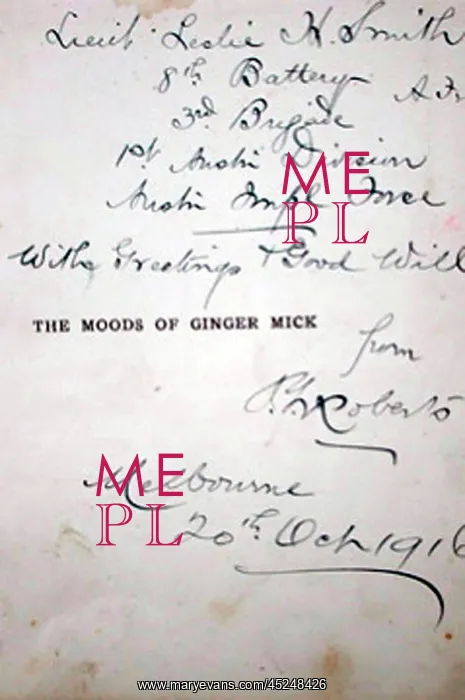 Lieut Leslie H. Smith
8th Battery
A.F.
3rd Brigade
1st Austn Division
Austn Impl Force
With Greetings + Good Will
THE MOODS OF GINGER MICK
from
Roberts
Melbourne
20th Oct 1916
ME
PL
ME
PL
www.maryevans.com/45248426